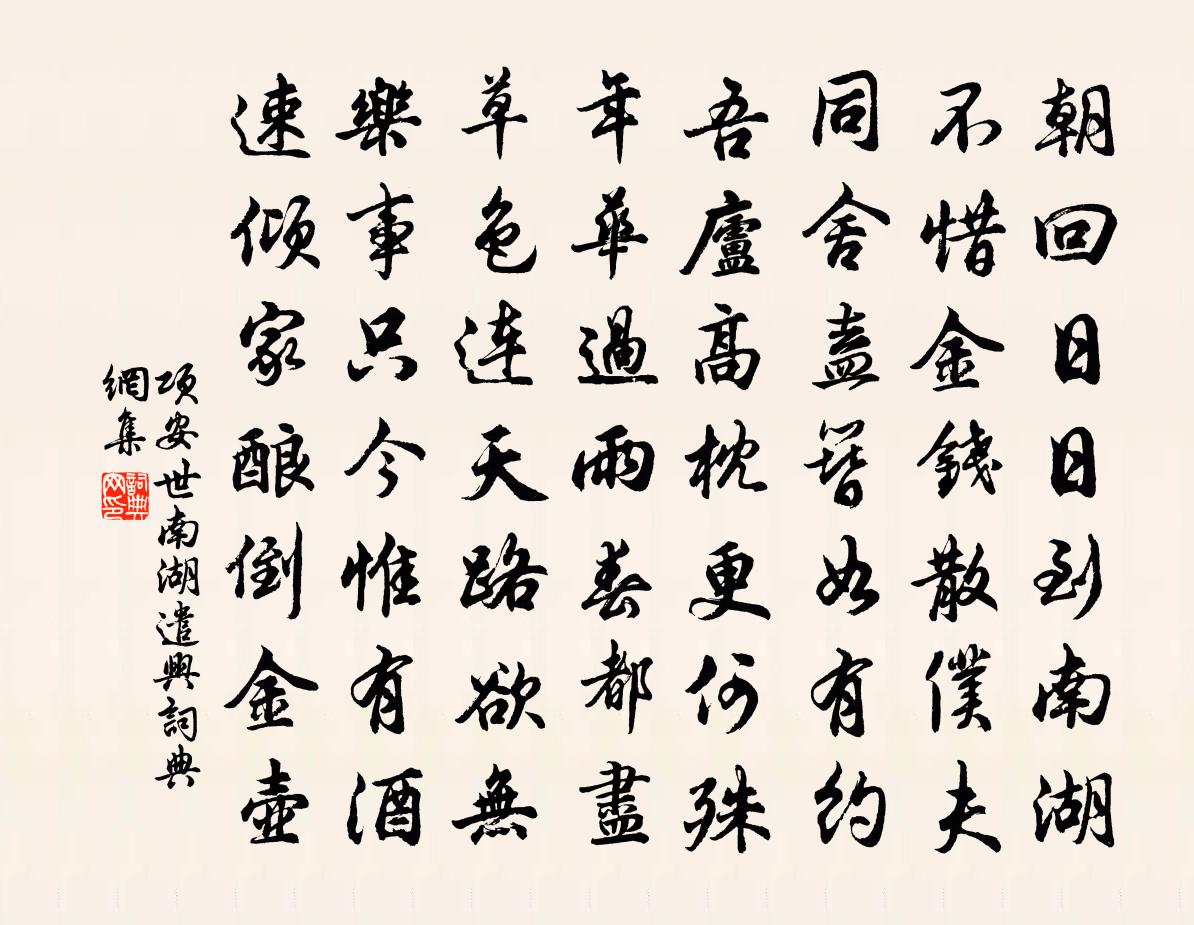 朝回日日到南湖
不惜金錢散僕夫
同舍盍簪如有約
吾廬高枕更何殊
年華過雨春都盡
草色連天路欲無
樂事只今惟有酒
速傾家釀倒金壺
項安世南湖遣興詞典
網集
詞典網印